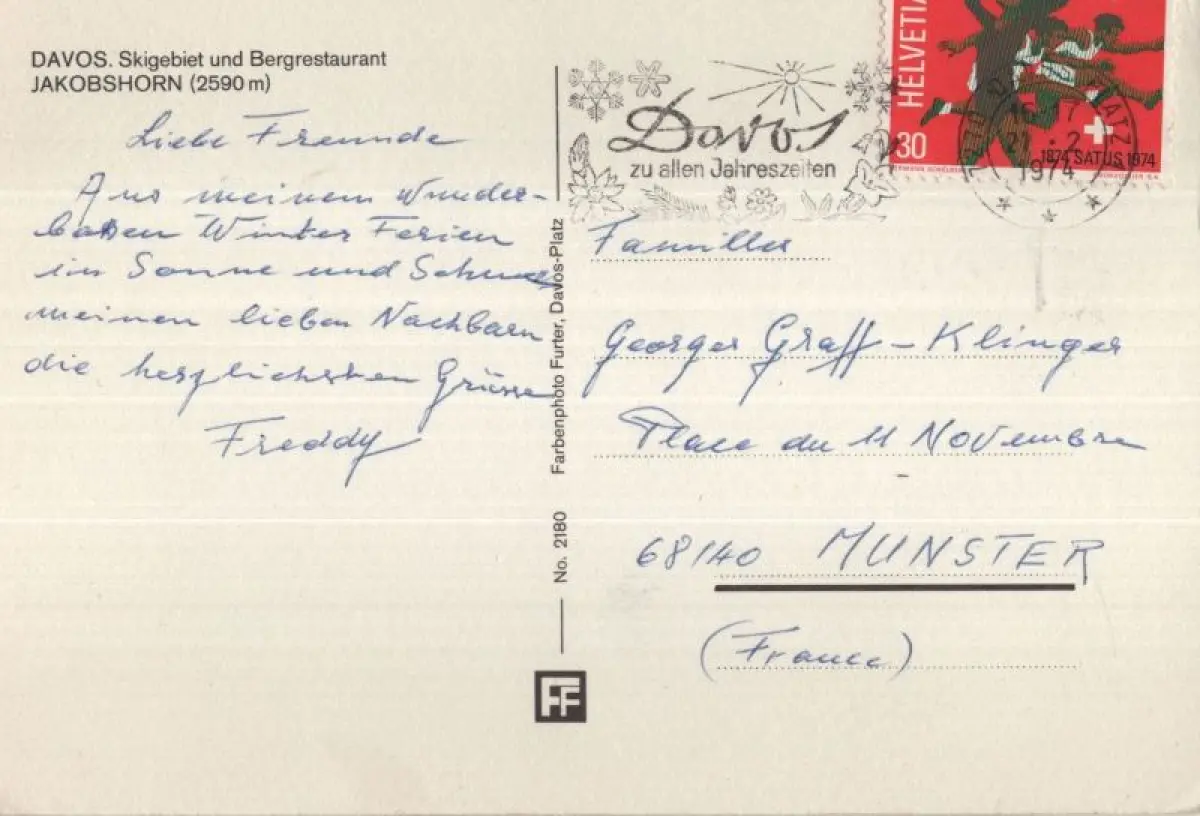 DAVOS. Skigebiet und Bergrestaurant
JAKOBSHORN (2590 m)
Liebe Freunde
Aus meinem wunder-
baren Winter Ferien
in Sonne und Schnee
meinen lieben Nachbarn
die herzlichsten Grüsse
Freddy
Farbenphoto Furter, Davos-Platz
No. 2180
FF
Davos
zu allen Jahreszeiten
HELVETIA
30
1874 SATUS 1974
1974
Familles
Georges Graff - Klinger
Place du 11 Novembre
68140 MUNSTER
(France)